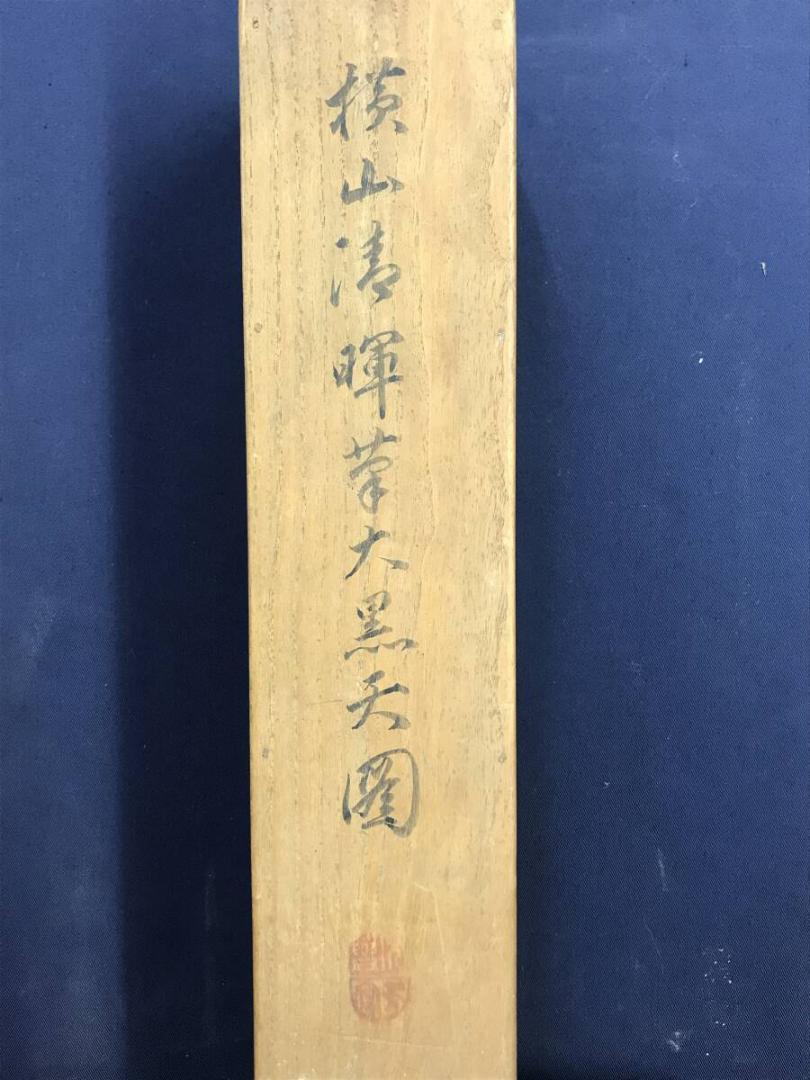 横山清暉筆大黒天圖